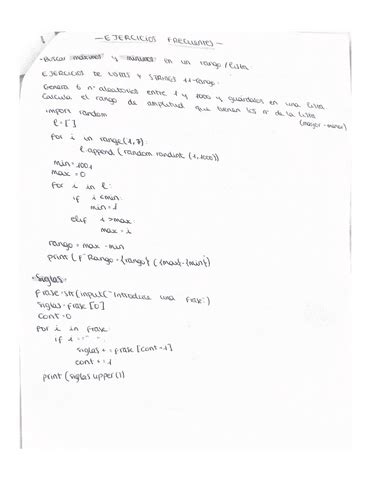 - EJERCICIOS FRECUENTES -
- Buscar máximos y mínimos en un rango/lista
EJERCICIO DE LISTAS Y STRINGS
Genera 6 nº aleatorios entre 1 y 1000 y guárdalos en una lista
Calcula el rango de amplitud que tienen los nº de la lista
(mayor-menor)
import random
l=[]
for i in range(1,7):
l.append(random.randint(1,1000))
min=1001
max=0
for i in l:
if i<min:
min=i
elif i>max:
max=i
rango=max-min
print(f"Rango={rango} ({max}-{min})
- Siglas -
frase=str(input("Introduce una frase:)
siglas=frase[0]
cont=0
for i in frase:
if i==" ":
siglas+=frase[cont+1]
cont+=1
print(siglas.upper())